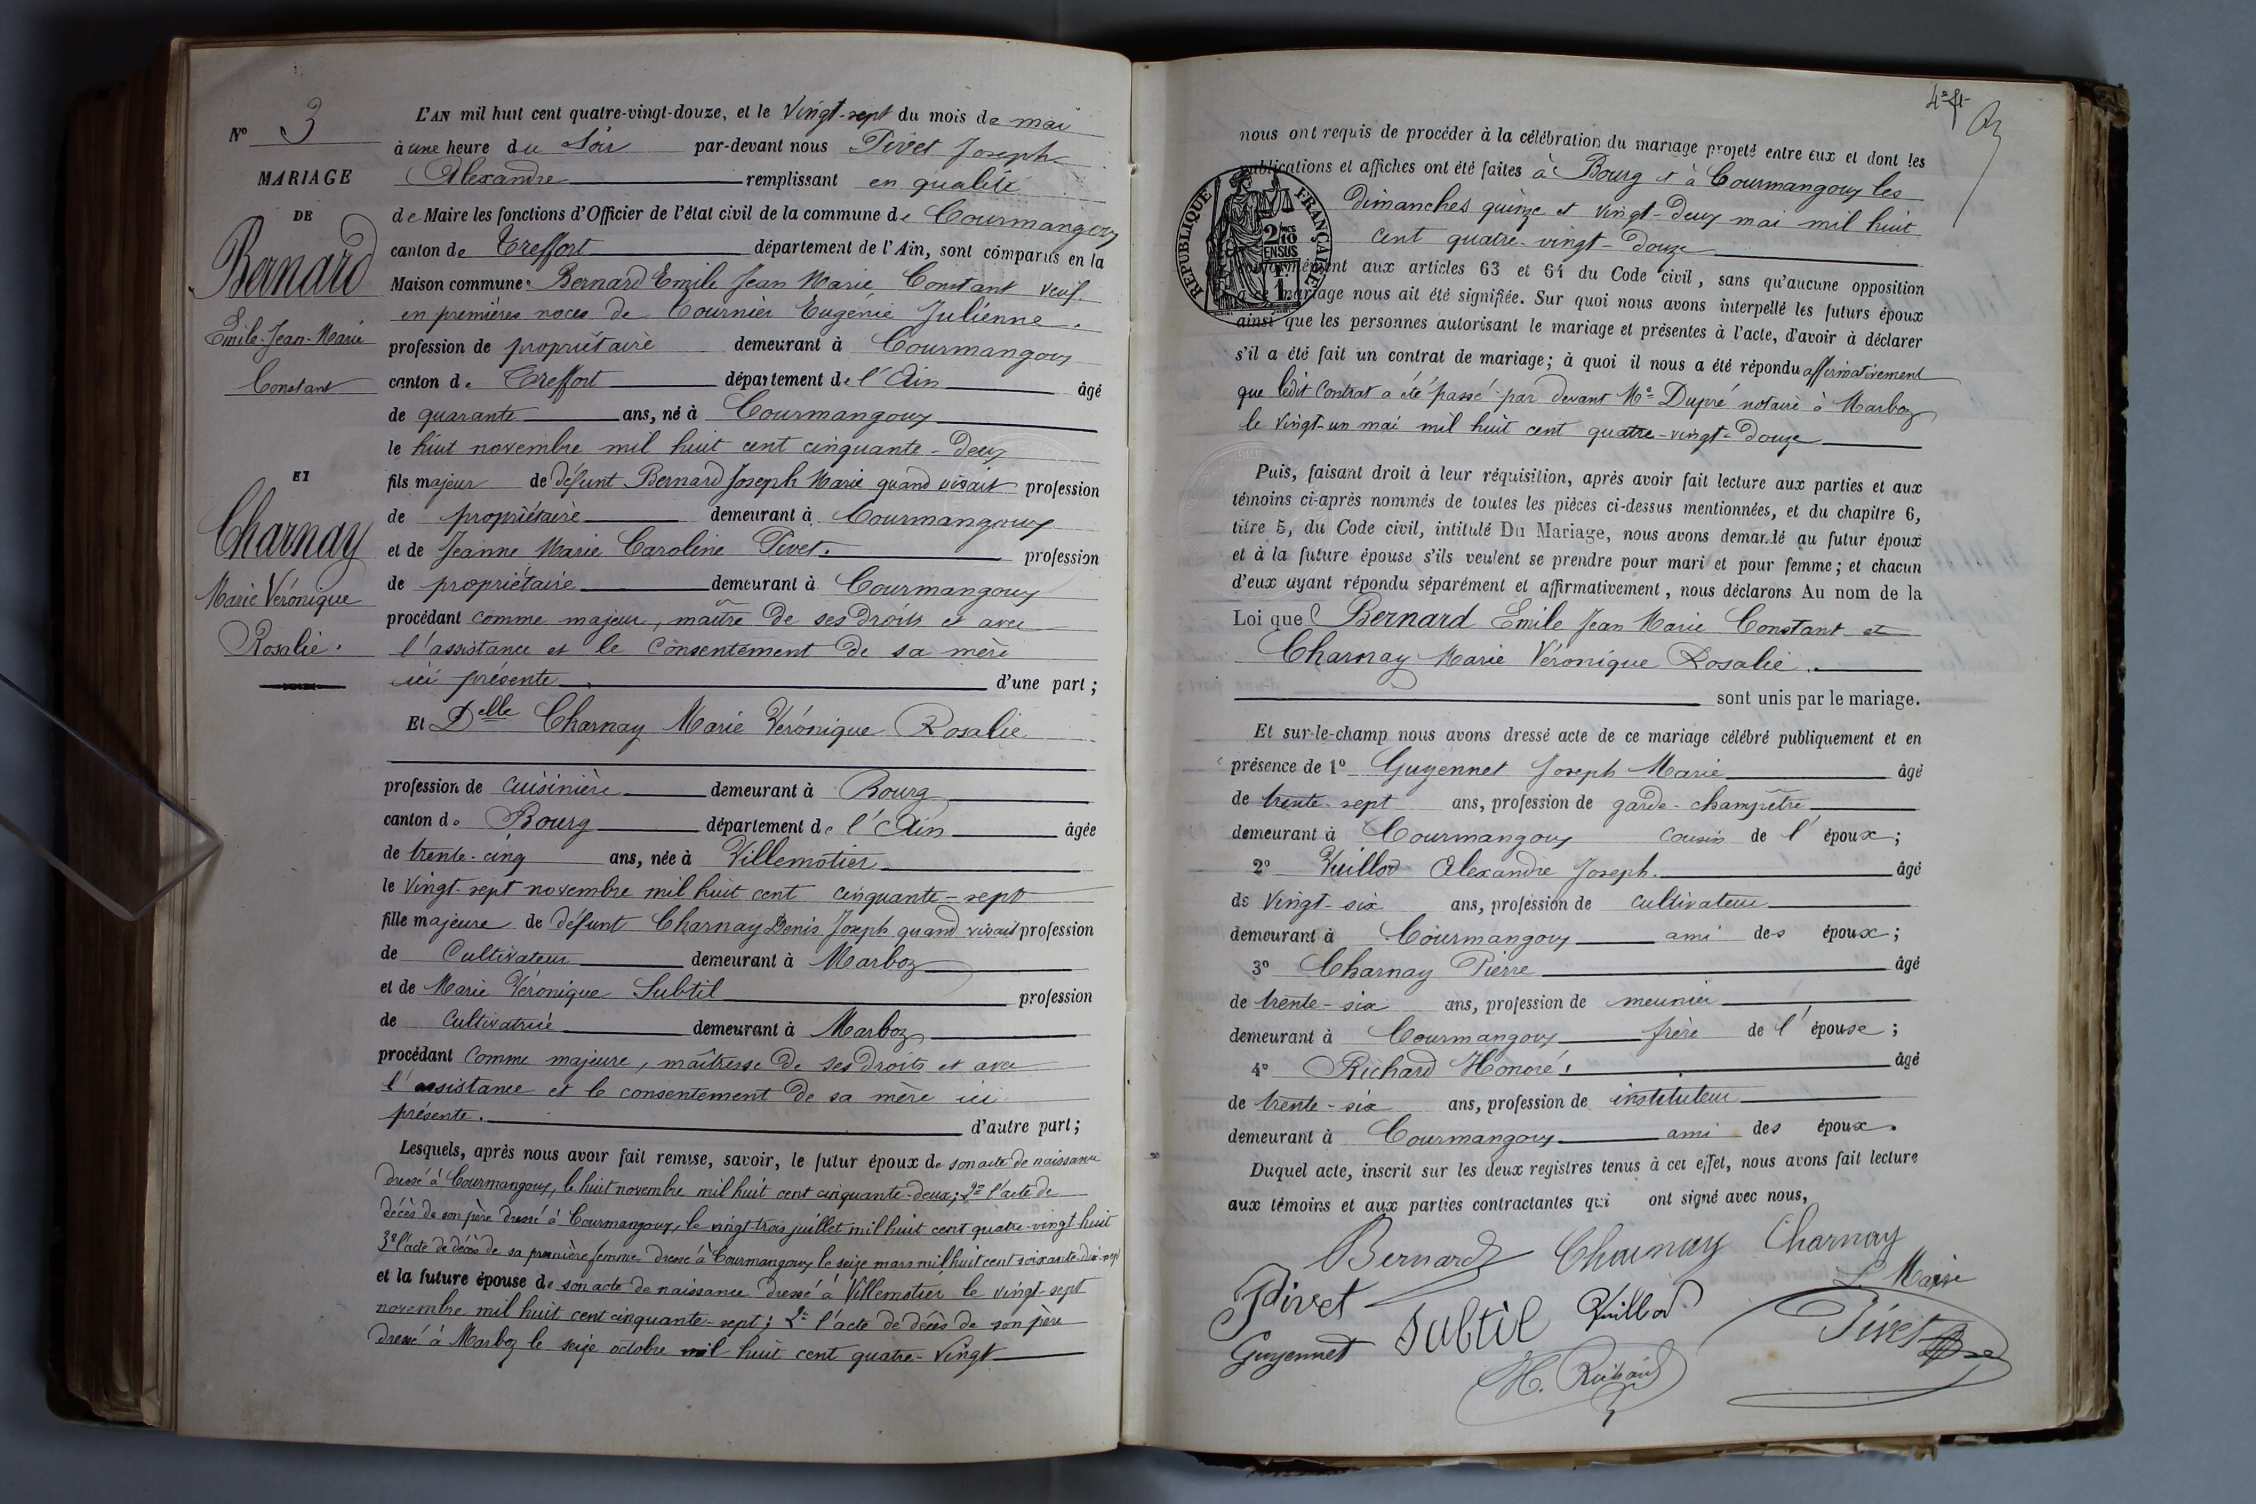 N° 3
MARIAGE
DE
Bernard
Emile-Jean-Marie
Constant
ET
Charnay
Marie Véronique
Rosalie.
L'AN mil huit cent quatre-vingt-douze, et le Vingt-sept du mois de mai
à une heure du Soir par-devant nous Pivet Joseph
Alexandre remplissant en qualité
de Maire les fonctions d'Officier de l'état civil de la commune de Courmangoux
canton de Treffort département de l'Ain, sont comparus en la
Maison commune: Bernard Emile Jean Marie Constant veuf
en premières noces de Tournier Eugénie Julienne.
profession de propriétaire demeurant à Courmangoux
canton de Treffort département de l'Ain âgé
de quarante ans, né à Courmangoux
le huit novembre mil huit cent cinquante-deux
fils majeur de défunt Bernard Joseph Marie quand vivait profession
de propriétaire demeurant à Courmangoux
et de Jeanne Marie Caroline Pivet. profession
de propriétaire demeurant à Courmangoux
procédant comme majeur, maître de ses droits et avec
l'assistance et le consentement de sa mère
ici présente d'une part;
Et Delle Charnay Marie Véronique Rosalie
profession de cuisinière demeurant à Bourg
canton de Bourg département de l'Ain âgée
de trente-cinq ans, née à Villemotier
le vingt-sept novembre mil huit cent cinquante-sept
fille majeure de défunt Charnay Denis Joseph quand vivait profession
de Cultivateur demeurant à Marboz
et de Marie Véronique Subtil profession
de cultivatrice demeurant à Marboz
procédant comme majeure, maîtresse de ses droits et avec
l'assistance et le consentement de sa mère ici
présente. d'autre part;
Lesquels, après nous avoir fait remise, savoir, le futur époux de son acte de naissance
dressé à Courmangoux, le huit novembre mil huit cent cinquante-deux; 2° l'acte de
décès de son père dressé à Courmangoux, le vingt trois juillet mil huit cent quatre-vingt huit
3° l'acte de décès de sa première femme dressé à Courmangoux le seize mars mil huit cent soixante dix-sept
et la future épouse de son acte de naissance dressé à Villemotier le vingt-sept
novembre mil huit cent cinquante-sept; 2° l'acte de décès de son père
dressé à Marboz le seize octobre mil huit cent quatre-vingt
nous ont requis de procéder à la célébration du mariage projeté entre eux et dont les
publications et affiches ont été faites à Bourg et à Courmangoux les
dimanches quinze et vingt-deux mai mil huit
cent quatre-vingt-douze
RÉPUBLIQUE FRANÇAISE
2/10 EN SUS
1
conformément aux articles 63 et 64 du Code civil, sans qu'aucune opposition
à ce mariage nous ait été signifiée. Sur quoi nous avons interpellé les futurs époux
ainsi que les personnes autorisant le mariage et présentes à l'acte, d'avoir à déclarer
s'il a été fait un contrat de mariage; à quoi il nous a été répondu affirmativement
que ledit Contrat a été passé par devant Me Dupré notaire à Marboz
le vingt-un mai mil huit cent quatre-vingt-douze
Puis, faisant droit à leur réquisition, après avoir fait lecture aux parties et aux
témoins ci-après nommés de toutes les pièces ci-dessus mentionnées, et du chapitre 6,
titre 5, du Code civil, intitulé Du Mariage, nous avons demandé au futur époux
et à la future épouse s'ils veulent se prendre pour mari et pour femme; et chacun
d'eux ayant répondu séparément et affirmativement, nous déclarons Au nom de la
Loi que Bernard Emile Jean Marie Constant et
Charnay Marie Véronique Rosalie.
sont unis par le mariage.
Et sur-le-champ nous avons dressé acte de ce mariage célébré publiquement et en
présence de 1° Guyennet Joseph Marie âgé
de trente-sept ans, profession de garde-champêtre
demeurant à Courmangoux cousin de l'époux;
2° Vuillod Alexandre Joseph. âgé
de vingt-six ans, profession de cultivateur
demeurant à Courmangoux ami des époux;
3° Charnay Pierre âgé
de trente-six ans, profession de meunier
demeurant à Courmangoux frère de l'épouse;
4° Richard Honoré; âgé
de trente-six ans, profession de instituteur
demeurant à Courmangoux ami des époux.
Duquel acte, inscrit sur les deux registres tenus à cet effet, nous avons fait lecture
aux témoins et aux parties contractantes qui ont signé avec nous,
Bernard Charnay Charnay
Pivet Subtil Vuillod Le Maire
Guyennet H. Richard Pivet